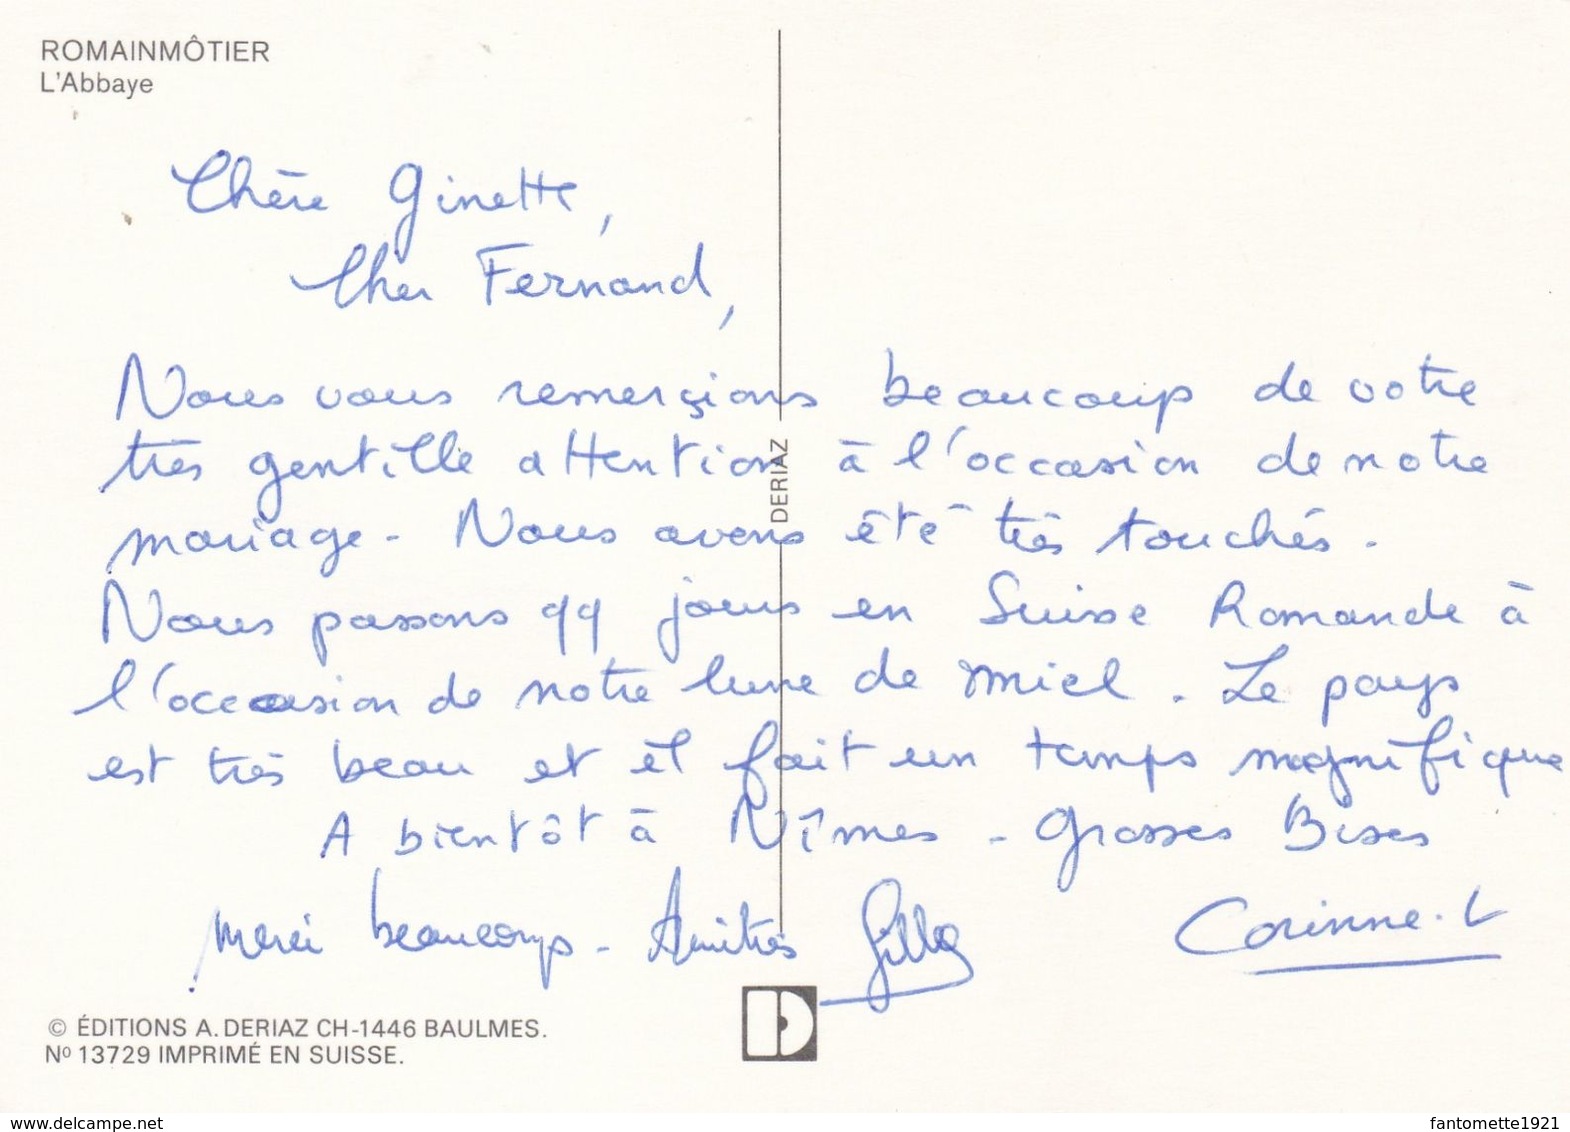 ROMAINMÔTIER
L'Abbaye
Chère Ginette,
Cher Fernand,
Nous vous remerçions beaucoup de votre
très gentille attention à l'occasion de notre
mariage - Nous avons été très touchés.
Nous passons qq jours en Suisse Romande à
l'occasion de notre lune de miel. Le pays
est très beau et il fait un temps magnifique
A bientôt à Nîmes - Grosses Bises
Merci beaucoup - Amitiés Gilles
Corinne. L
DERIAZ
© ÉDITIONS A. DERIAZ CH-1446 BAULMES.
Nº 13729 IMPRIMÉ EN SUISSE.
www.delcampe.net
fantomette1921